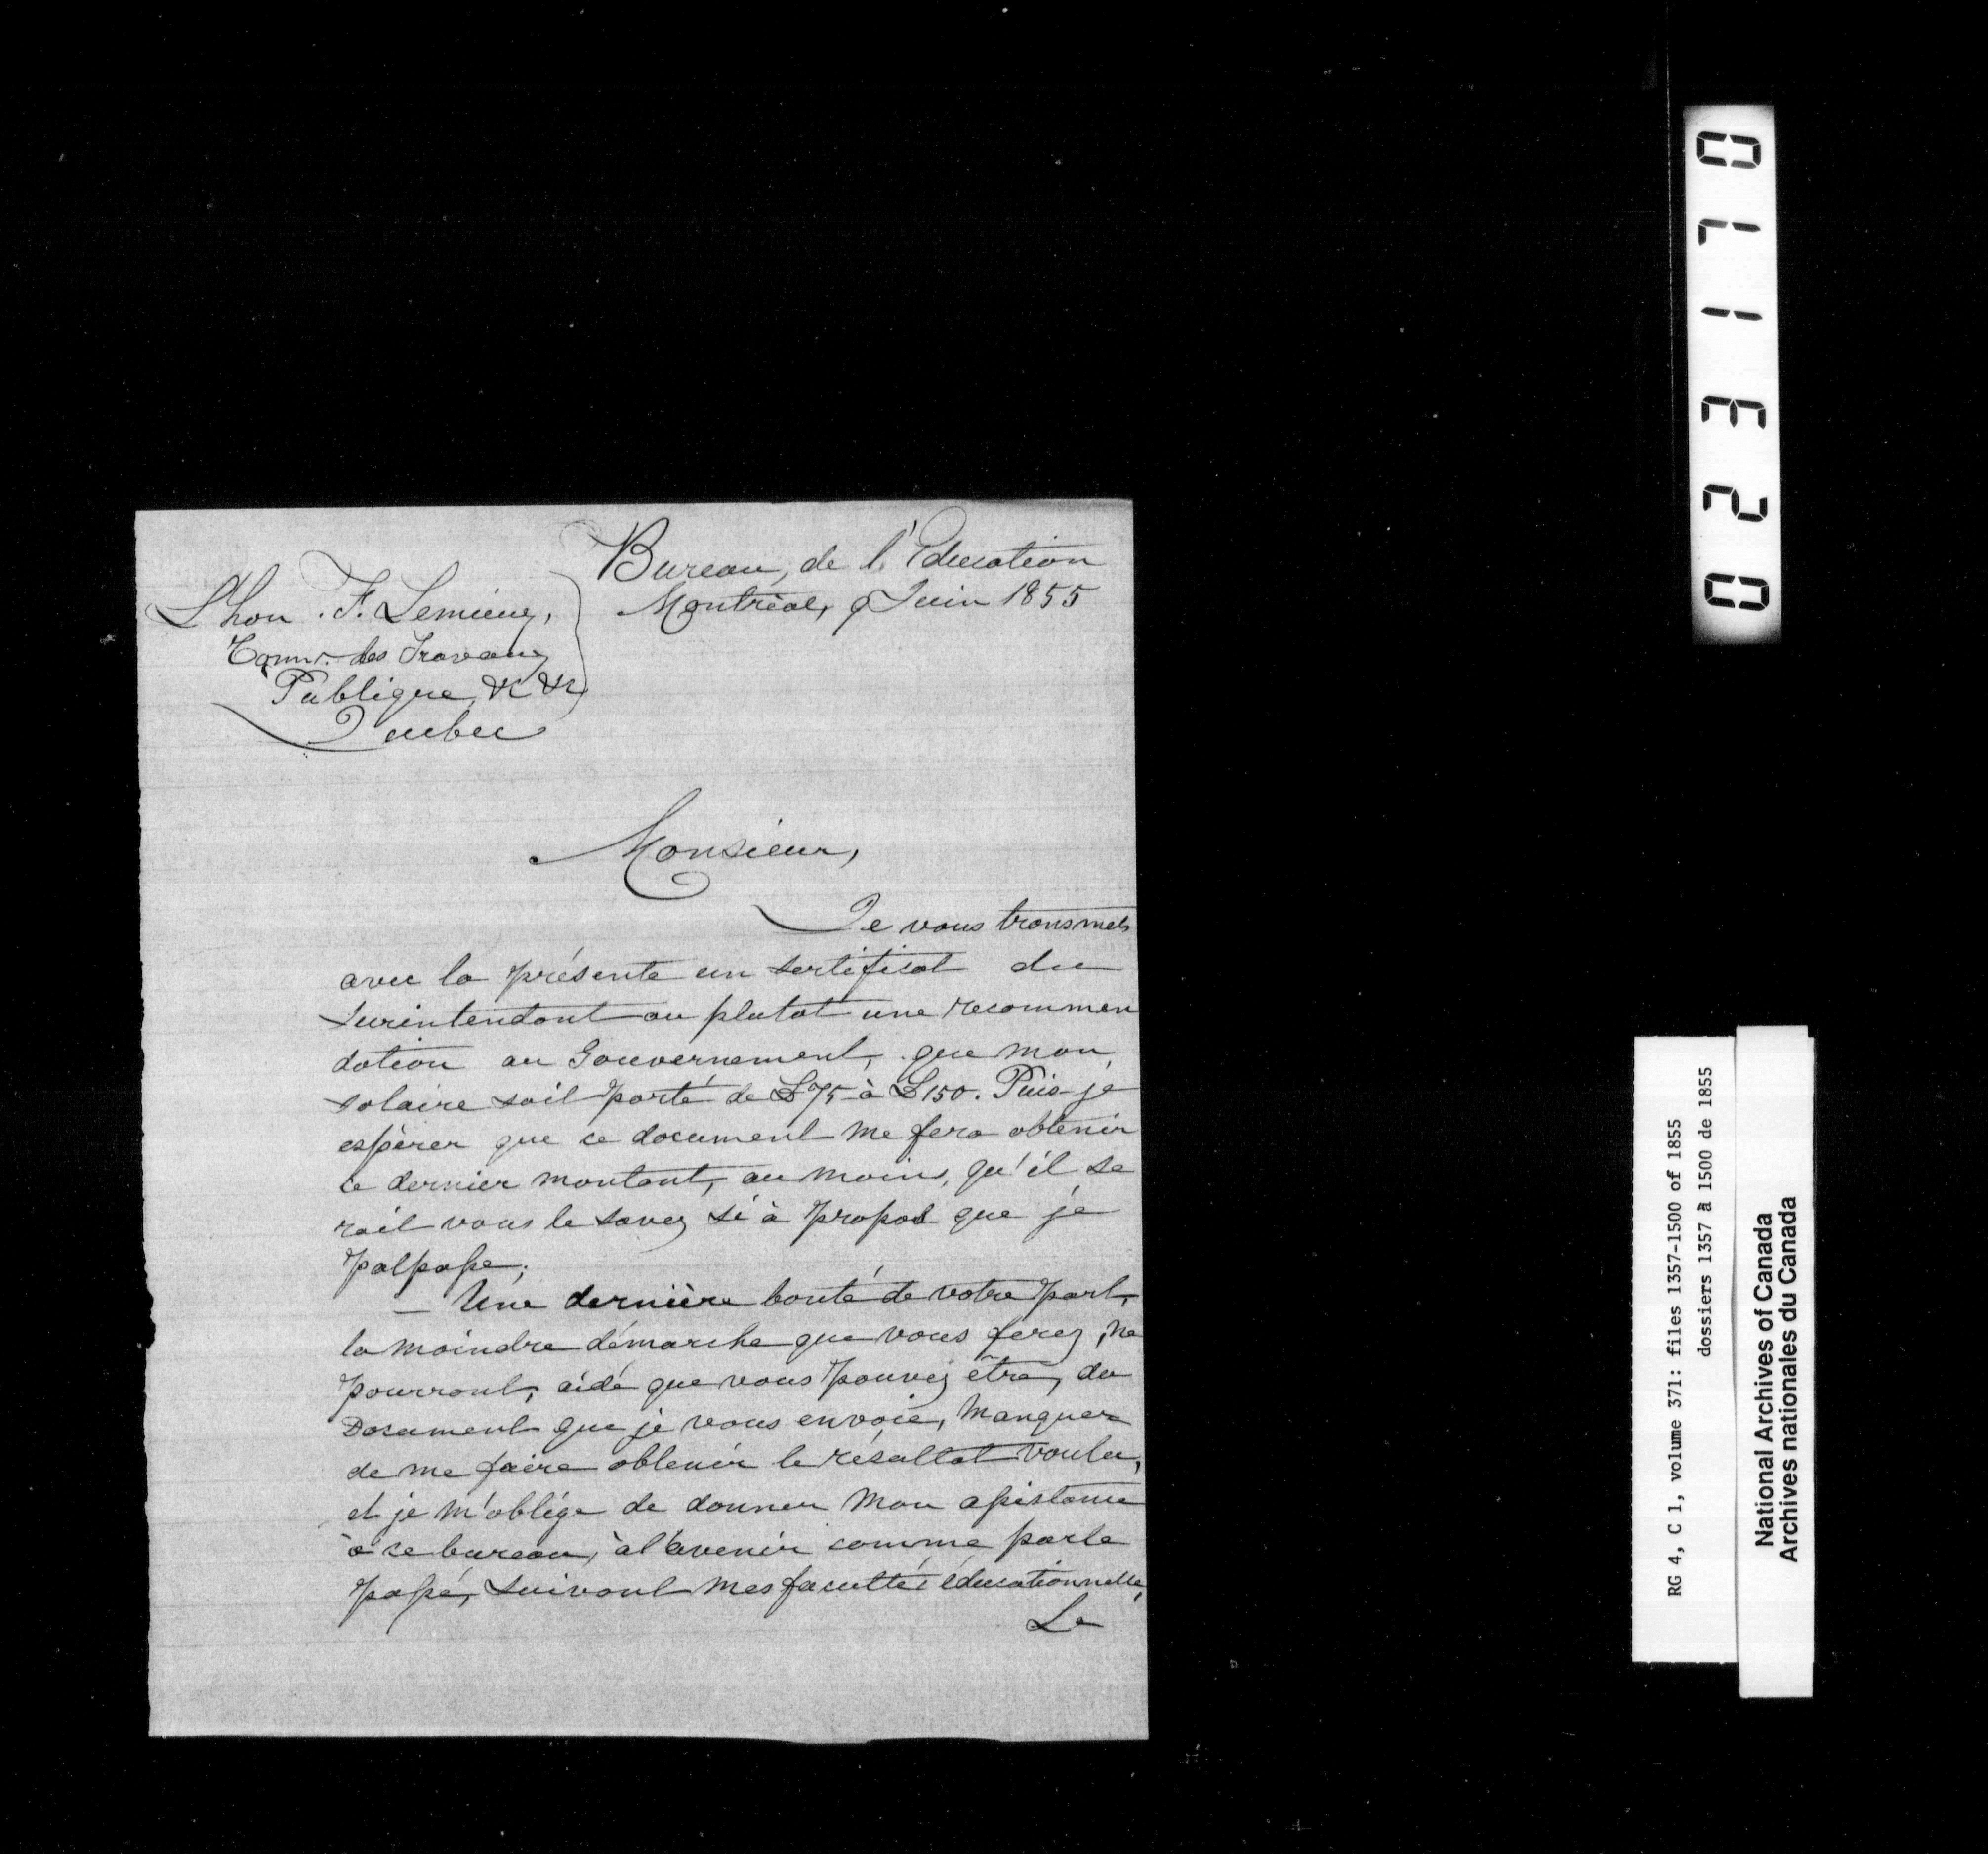 Bureau, de l'Education
Montréal, 9 Juin 1855
L'hon. F. Lemieux,
Comr. des Travaux
Publique, &c &c
Quebec
Monsieur,
Je vous transmets
avec la présente un sertificat du
Surintendant ou plutot une recommen
dation au Gouvernement, que mon
salaire soit porté de £75 à £150. Puis-je
espèrer que ce document me fera obtenir
ce dernier montant, au moins, qu'il se
rait vous le savez si à propos que je
palpasse;
— Une dernière bonté de votre part,
la moindre démarche que vous ferez, ne
pourront, aidé que vous pouvez être, du
Document que je vous envoie, manquer
de me faire obtenir le résultat voulu,
et je m'oblige de donner mon assistance
à ce bureau, à l'avenir comme par le
passé, suivant mes facultés éducationnelle,
Le
023170
RG 4, C 1, volume 371: files 1357-1500 of 1855
dossiers 1357 à 1500 de 1855
National Archives of Canada
Archives nationales du Canada